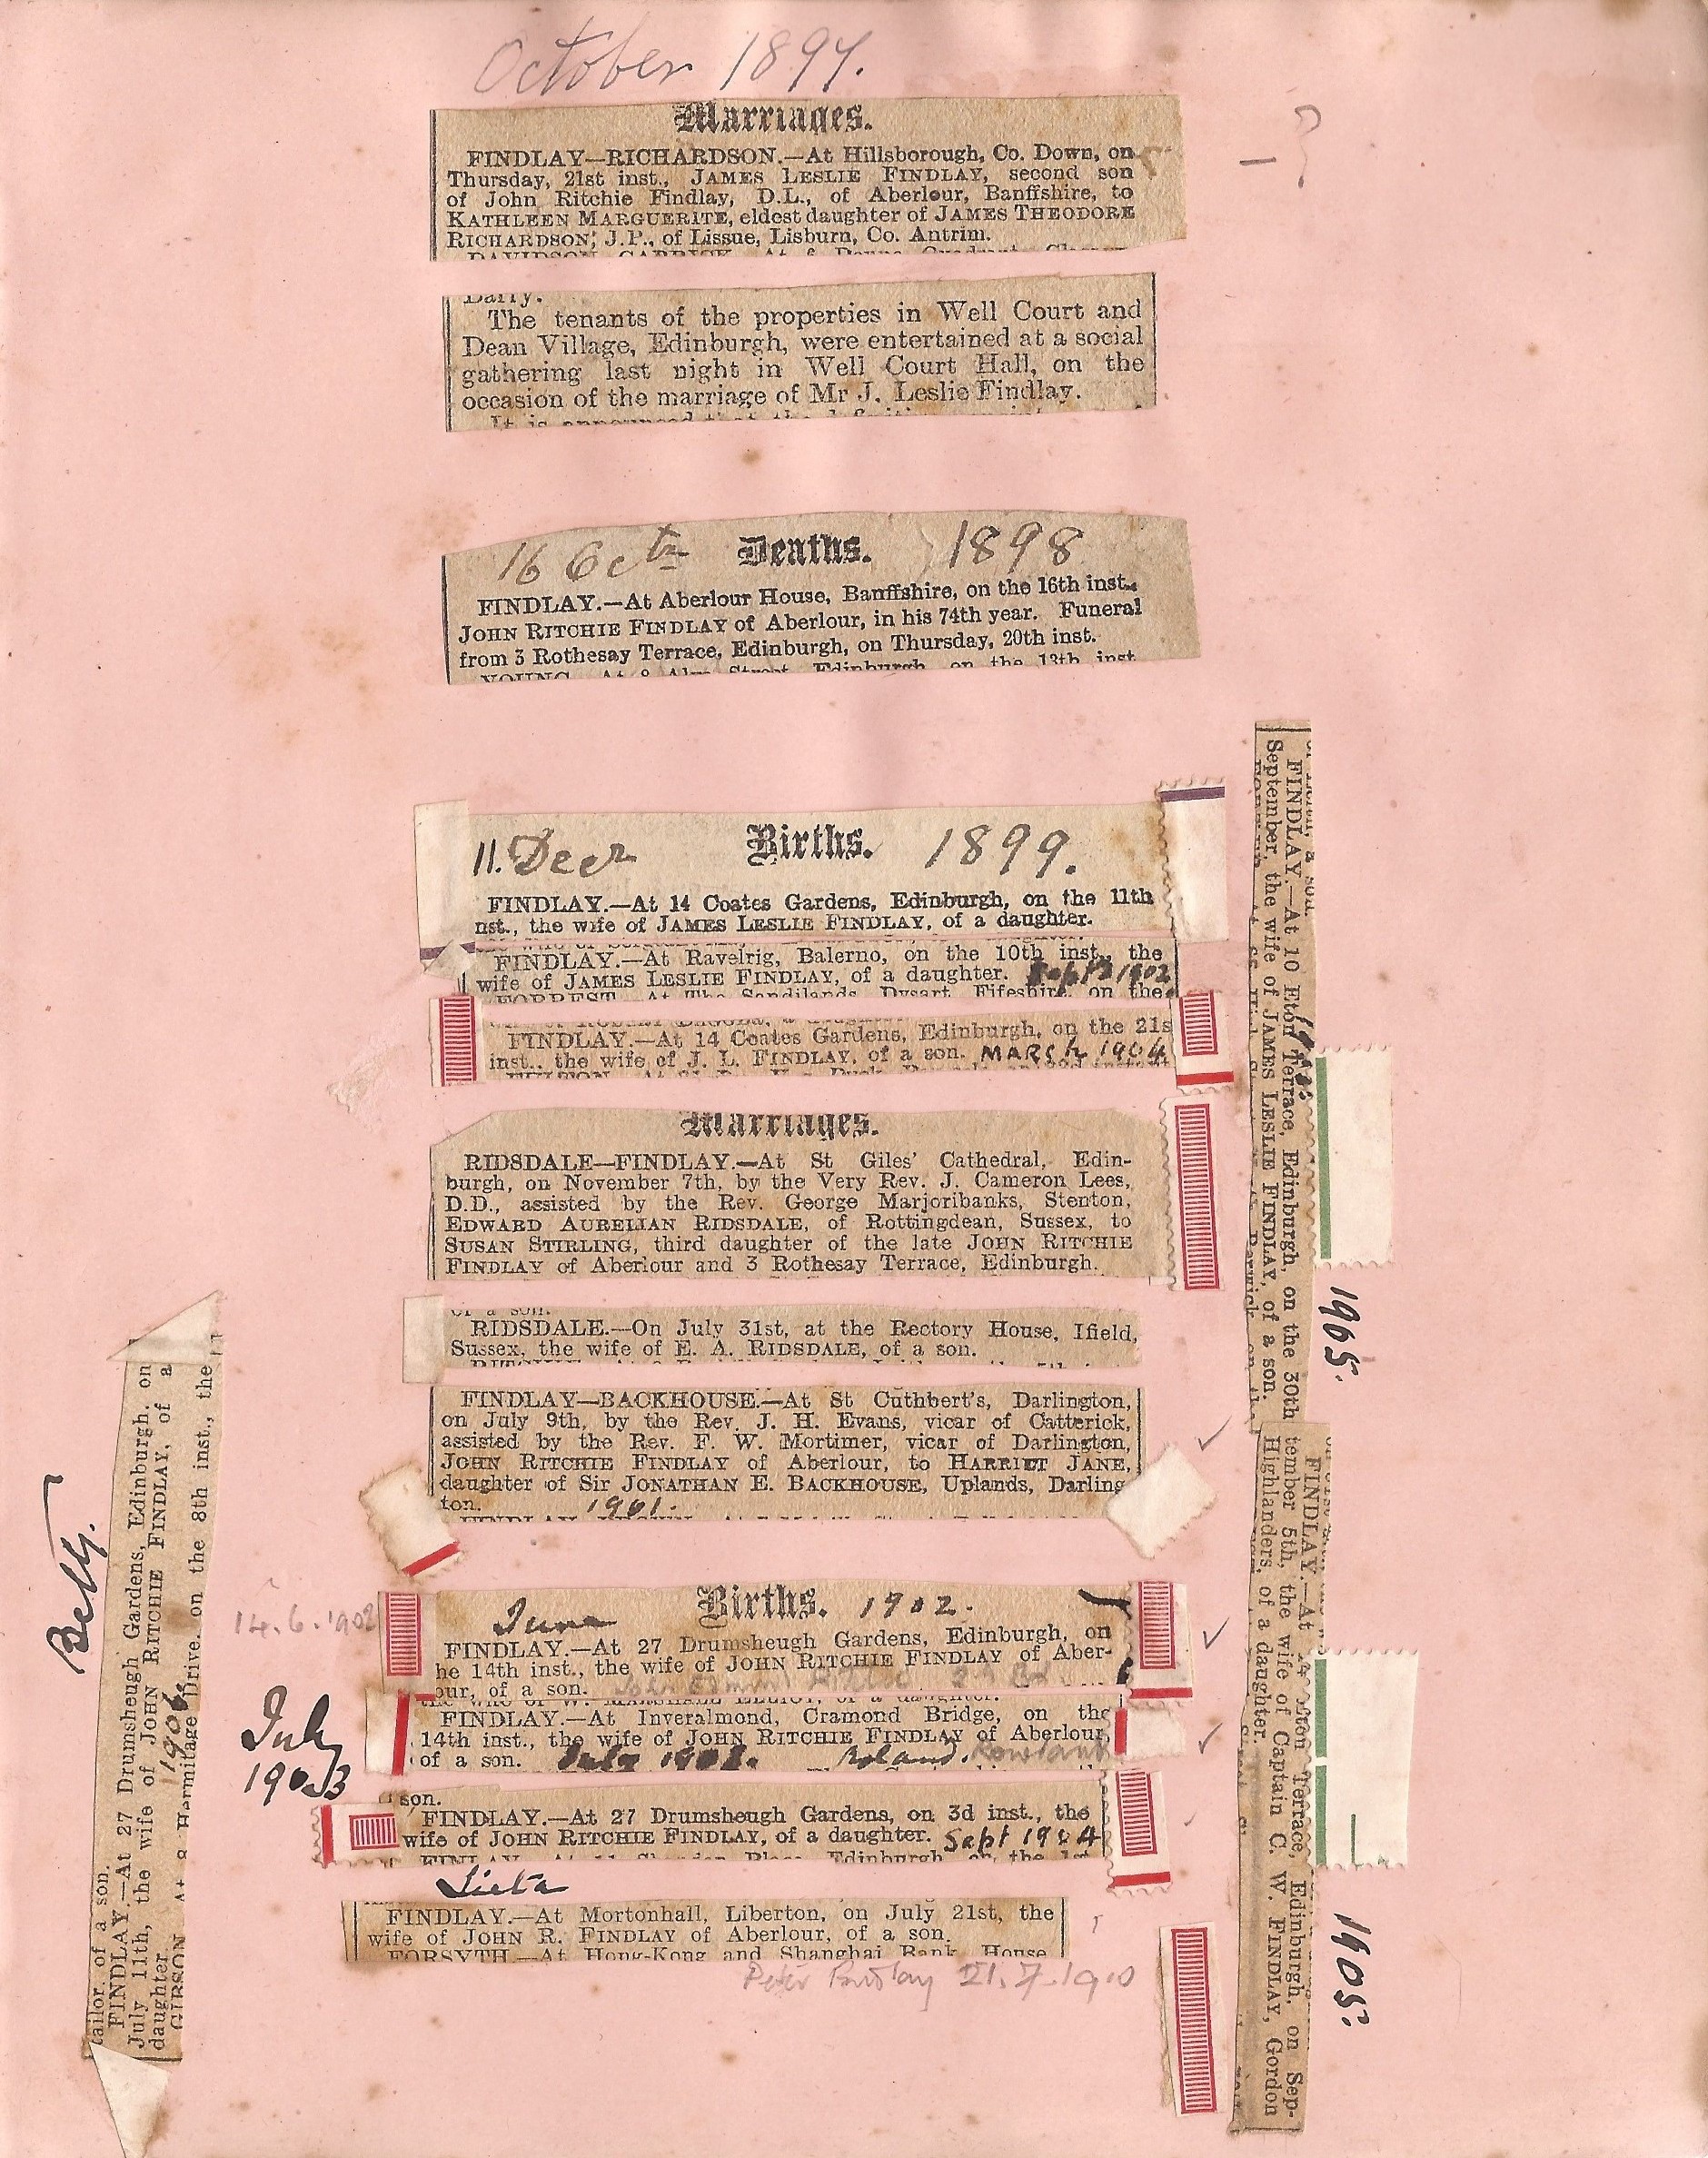 October 1897.
Marriages.
FINDLAY—RICHARDSON.—At Hillsborough, Co. Down, on
Thursday, 21st inst., JAMES LESLIE FINDLAY, second son
of John Ritchie Findlay, D.L., of Aberlour, Banffshire, to
KATHLEEN MARGUERITE, eldest daughter of JAMES THEODORE
RICHARDSON, J.P., of Lissue, Lisburn, Co. Antrim.
Barry.
The tenants of the properties in Well Court and
Dean Village, Edinburgh, were entertained at a social
gathering last night in Well Court Hall, on the
occasion of the marriage of Mr J. Leslie Findlay.
It is announced that the
16 Octr Deaths. 1898
FINDLAY.—At Aberlour House, Banffshire, on the 16th inst.,
JOHN RITCHIE FINDLAY of Aberlour, in his 74th year. Funeral
from 3 Rothesay Terrace, Edinburgh, on Thursday, 20th inst.
YOUNG.—At 8 Street, Edinburgh, on the 13th inst
11. Decr Births. 1899.
FINDLAY.—At 14 Coates Gardens, Edinburgh, on the 11th
nst., the wife of JAMES LESLIE FINDLAY, of a daughter.
FINDLAY.—At Ravelrig, Balerno, on the 10th inst., the
wife of JAMES LESLIE FINDLAY, of a daughter. Sept 1902
FORREST.—At The Sandilands, Dysart, Fifeshire, on the
FINDLAY.—At 14 Coates Gardens, Edinburgh, on the 21s
inst., the wife of J. L. FINDLAY, of a son. MARCH 1904
Marriages.
RIDSDALE—FINDLAY.—At St Giles' Cathedral, Edin-
burgh, on November 7th, by the Very Rev. J. Cameron Lees,
D.D., assisted by the Rev. George Marjoribanks, Stenton,
EDWARD AURELIAN RIDSDALE, of Rottingdean, Sussex, to
SUSAN STIRLING, third daughter of the late JOHN RITCHIE
FINDLAY of Aberlour and 3 Rothesay Terrace, Edinburgh.
of a son.
RIDSDALE.—On July 31st, at the Rectory House, Ifield,
Sussex, the wife of E. A. RIDSDALE, of a son.
FINDLAY—BACKHOUSE.—At St Cuthbert's, Darlington,
on July 9th, by the Rev. J. H. Evans, vicar of Catterick,
assisted by the Rev. F. W. Mortimer, vicar of Darlington,
JOHN RITCHIE FINDLAY of Aberlour, to HARRIET JANE,
daughter of Sir JONATHAN E. BACKHOUSE, Uplands, Darling
ton. 1901.
14.6.1902
June Births. 1902.
FINDLAY.—At 27 Drumsheugh Gardens, Edinburgh, on
he 14th inst., the wife of JOHN RITCHIE FINDLAY of Aber-
our, of a son. John Edmund
the wife of W. MARSHALL ELLIOT, of a daughter.
FINDLAY.—At Inveralmond, Cramond Bridge, on the
14th inst., the wife of JOHN RITCHIE FINDLAY of Aberlour,
of a son. July Roland. Rowland
July
1903
son.
FINDLAY.—At 27 Drumsheugh Gardens, on 3d inst., the
wife of JOHN RITCHIE FINDLAY, of a daughter. Sept 1904
FINLAY.—At 11 Place, Edinburgh, on the 1st
FINDLAY.—At Mortonhall, Liberton, on July 21st, the
wife of JOHN R. FINDLAY of Aberlour, of a son.
FORSYTH.—At Hong-Kong and Shanghai Bank House
Peter Findlay 21.7.1910
Betty.
tailor, of a son.
FINDLAY.—At 27 Drumsheugh Gardens, Edinburgh, on
July 11th, the wife of JOHN RITCHIE FINDLAY, of a
daughter. 1906
GIBSON.—At 8 Hermitage Drive, on the 8th inst., the
a son.
FINDLAY.—At 10 Eton Terrace, Edinburgh, on the 30th
September, the wife of JAMES LESLIE FINDLAY, of a son.
1905.
FINDLAY.—At 14 Eton Terrace, Edinburgh, on Sep-
tember 5th, the wife of Captain C. W. FINDLAY, Gordon
Highlanders, of a daughter.
1905.